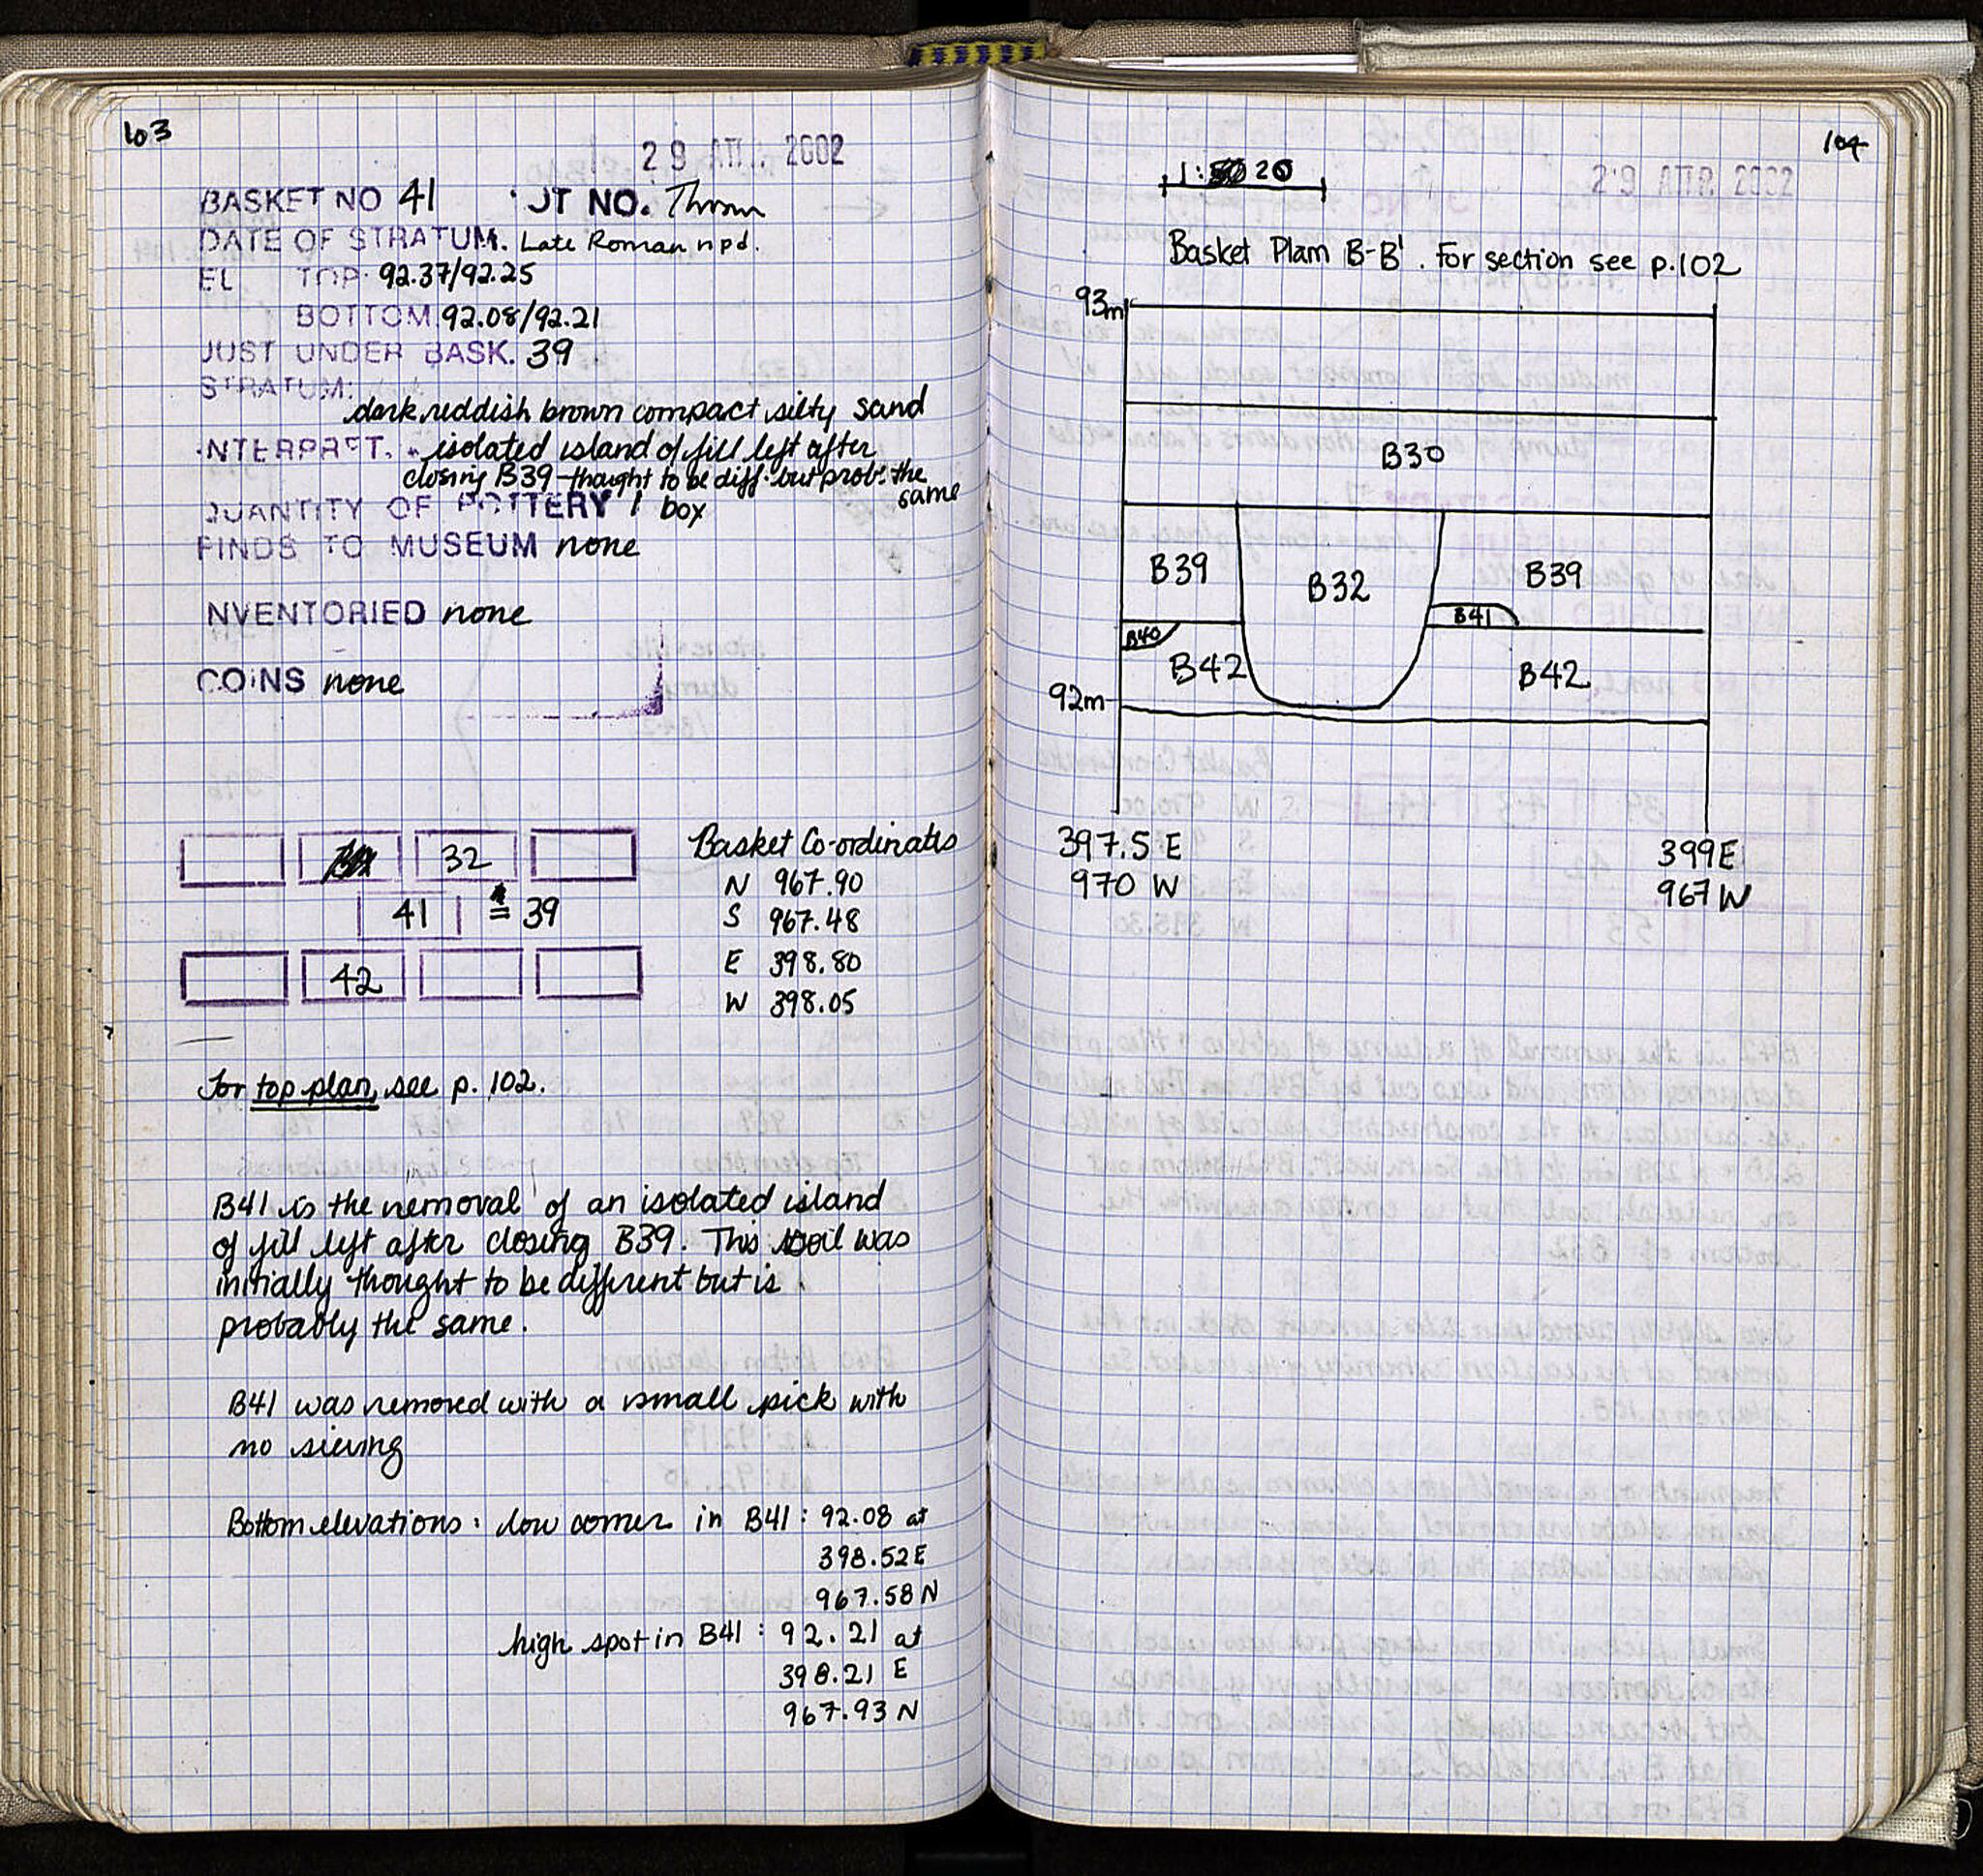 103
29 ΑΠΡ. 2002
BASKET NO 41 JT NO. Thrown
DATE OF STRATUM. Late Roman npd.
EL TOP 92.37/92.25
BOTTOM 92.08/92.21
JUST UNDER BASK. 39
STRATUM:
dark reddish brown compact silty sand
INTERPRET. isolated island of fill left after
closing B39 - thought to be diff. but prob. the
same
QUANTITY OF POTTERY 1 box
FINDS TO MUSEUM none
INVENTORIED none
COINS none
32
41 = 39
42
Basket Co-ordinates
N 967.90
S 967.48
E 398.80
W 398.05
For top plan, see p. 102.
B41 is the removal of an isolated island
of fill left after closing B39. This soil was
initially thought to be different but is
probably the same.
B41 was removed with a small pick with
no sieving
Bottom elevations: low corner in B41: 92.08 at
398.52E
967.58 N
high spot in B41: 92.21 at
398.21 E
967.93 N
104
1: 20
29 ΑΠΡ. 2002
Basket Plam B-B'. For section see p.102
93m
B30
B39
B32
B39
B41
B40
B42
B42
92m
397.5 E
970 W
399E
967 W